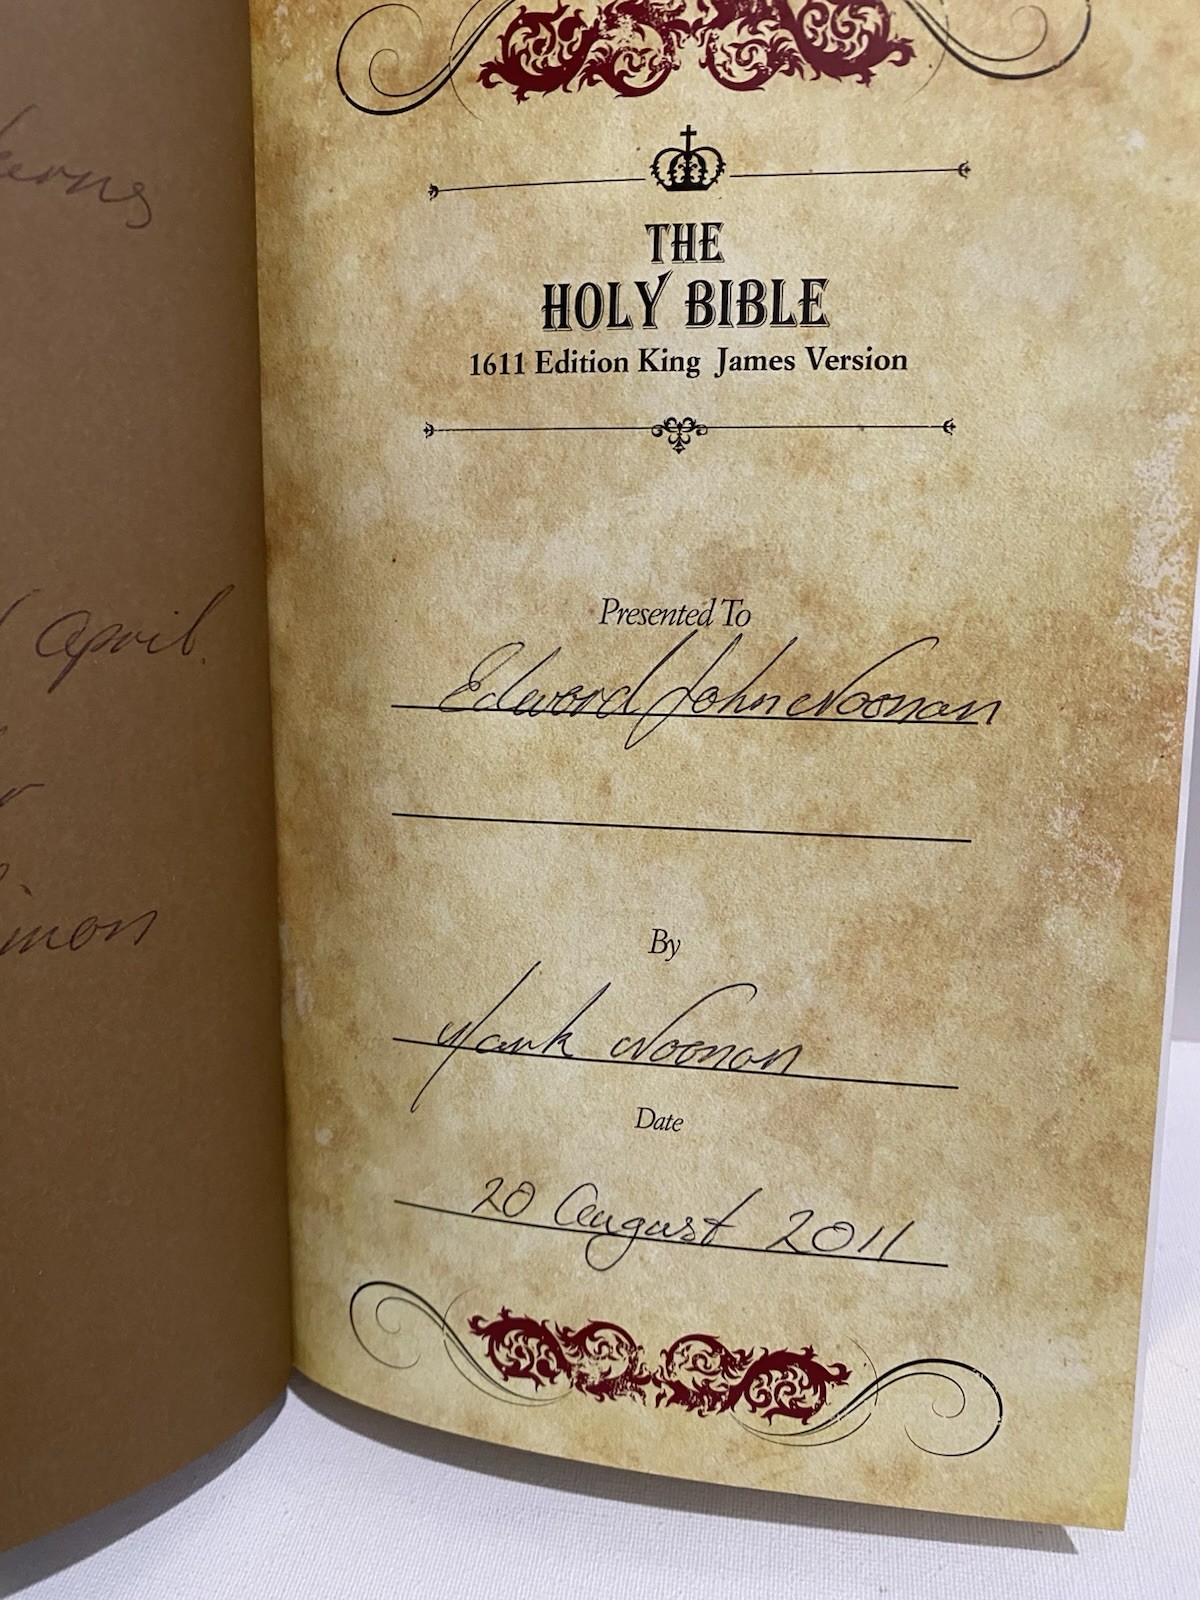 April.
THE
HOLY BIBLE
1611 Edition King James Version
Presented To
Edward John Noonan
By
Mark Noonan
Date
20 August 2011